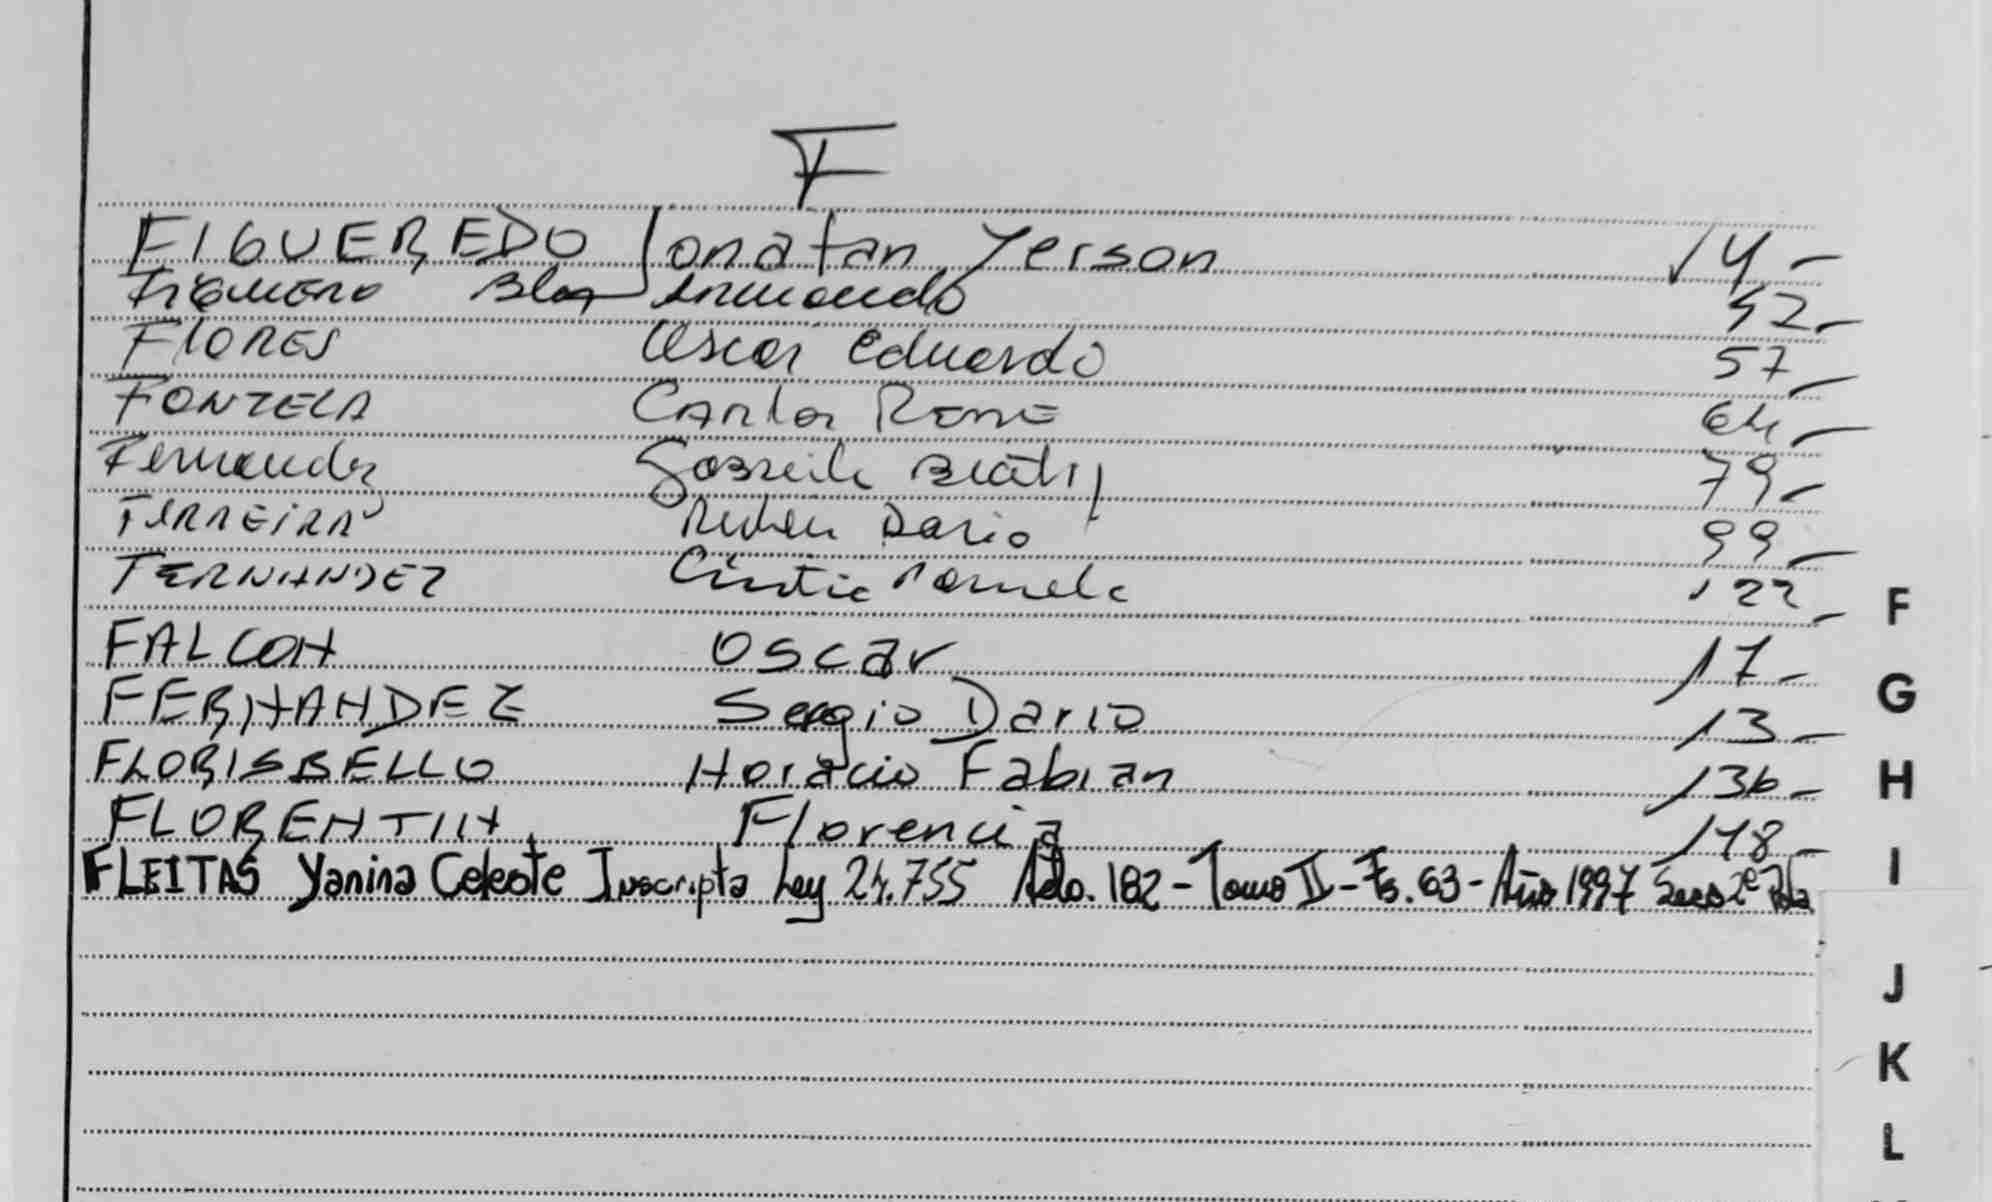 F
FIGUEREDO Jonatan Yerson 14-
Figueredo Blas Armando 42-
FLORES Oscar Eduardo 57-
FONZECA Carlos Rene 64-
Fernandez Gabriela Beatriz 79-
FERREIRA Ruben Dario 99-
FERNANDEZ Cintia Pamela 122-
FALCON Oscar 17-
FERNANDEZ Sergio Dario 13-
FLORISBELLO Horacio Fabian 136-
FLORENTIN Florencia 178-
FLEITAS Yanina Celeste Inscripta Ley 24.755 Acto. 182 - Tomo II - Fs. 63 - Año 1997 Secc 2ª
F
G
H
I
J
K
L